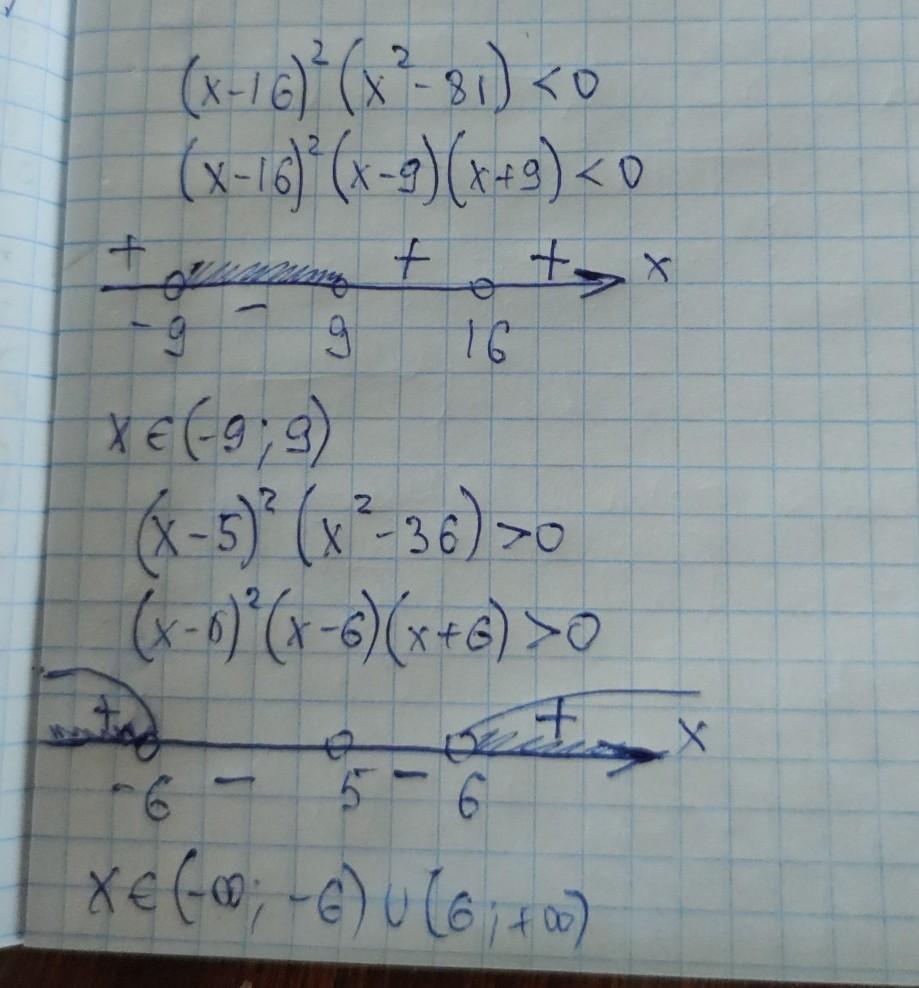 (x-16)² (x²-81) < 0
(x-16)² (x-9)(x+9) < 0
+ - + + x
-9 9 16
x ∈ (-9; 9)
(x-5)² (x²-36) > 0
(x-6)² (x-6)(x+6) > 0
+ + x
-6 - 5 - 6
x ∈ (-∞; -6) ∪ (6; +∞)